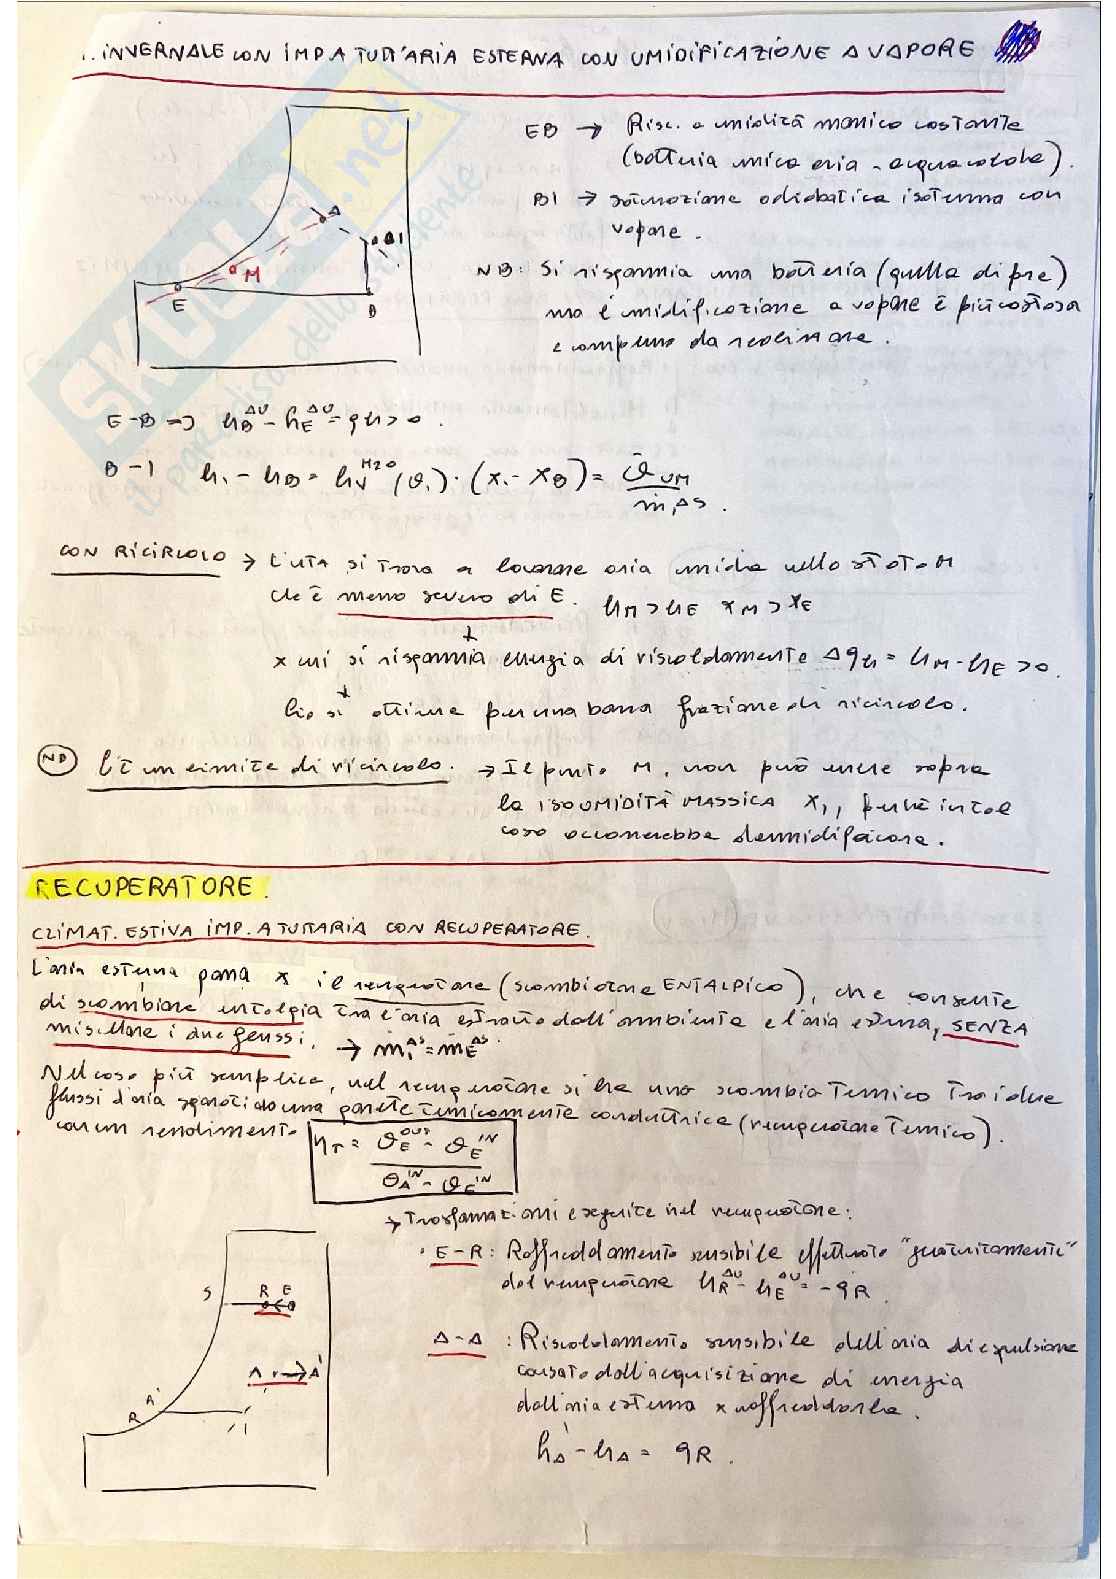 INVERNALE CON IMP A TUTT'ARIA ESTERNA CON UMIDIFICAZIONE A VAPORE
EB → Risc. a umidità massica costante
(batteria unica aria-acqua calda).
B1 → saturazione adiabatica isoterma con
vapore.
NB: Si risparmia una batteria (quella di pre)
ma l'umidificazione a vapore è più costosa
e complessa da realizzare.
A
1
M
E
B
E-B => h_B^AU - h_E^AU = qh > 0.
B-1 h_1 - h_B = h_V^H2O (ϑ_1) · (x_1 - x_B) = Q̇_UM / ṁ_1^AS.
CON RICIRCOLO → L'UTA si trova a lavorare aria umida nello stato M
che è meno severo di E. h_M > h_E x_M > x_E
x cui si risparmia energia di riscaldamento Δqh = h_M - h_E > 0.
Ciò si ottiene per una bassa frazione di ricircolo.
NB C'è un limite di ricircolo. → Il punto M, non può essere sopra
la ISOUMIDITÀ MASSICA X_1, perché in tal
caso occorrerebbe deumidificare.
RECUPERATORE.
CLIMAT. ESTIVA IMP. A TUTTARIA CON RECUPERATORE.
L'aria esterna passa x il recuperatore (scambiatore ENTALPICO), che consente
di scambiare entalpia tra l'aria estratta dall'ambiente e l'aria esterna, SENZA
miscelare i due flussi. → ṁ_1^AS = ṁ_E^AS
Nel caso più semplice, nel recuperatore si ha uno scambio termico tra i due
flussi d'aria separati da una parete termicamente conduttrice (recuperatore termico).
con un rendimento η_T = ϑ_E^OUT - ϑ_E^IN / ϑ_A^IN - ϑ_E^IN
→ Trasformazioni eseguite nel recuperatore:
· E-R: Raffreddamento sensibile effettuato "gratuitamente"
dal recuperatore h_R^AU - h_E^AU = -q_R.
A-A : Riscaldamento sensibile dell'aria di espulsione
causato dall'acquisizione di energia
dall'aria esterna x raffreddarla.
h_A' - h_A = q_R.
S R E
A → A'
R A' 1
SKUOLA.net
il paradiso dello studente